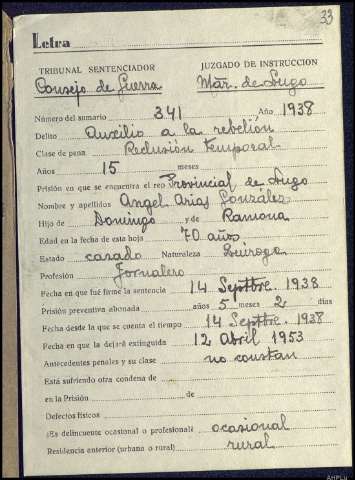 33
Letra
TRIBUNAL SENTENCIADOR JUZGADO DE INSTRUCCIÓN
Consejo de Guerra Mar. de Lugo
Número del sumario 341 Año 1938
Delito Auxilio a la rebelión
Clase de pena Reclusión temporal
Años 15 meses
Prisión en que se encuentra el reo Provincial de Lugo
Nombre y apellidos Angel Arias Gonzalez
Hijo de Domingo y de Ramona
Edad en la fecha de esta hoja 70 años
Estado casado Naturaleza Quiroga
Profesión Jornalero
Fecha en que fué firme la sentencia 14 Septbre. 1938
Prisión preventiva abonada años 5 meses 2 días
Fecha desde la que se cuenta el tiempo 14 Septbre. 1938
Fecha en que la dejará extinguida 12 Abril 1953
Antecedentes penales y su clase no constan
Está sufriendo otra condena de
en la Prisión de
Defectos físicos
¿Es delincuente ocasional o profesional? ocasional
Residencia anterior (urbana o rural) rural
AHPLu